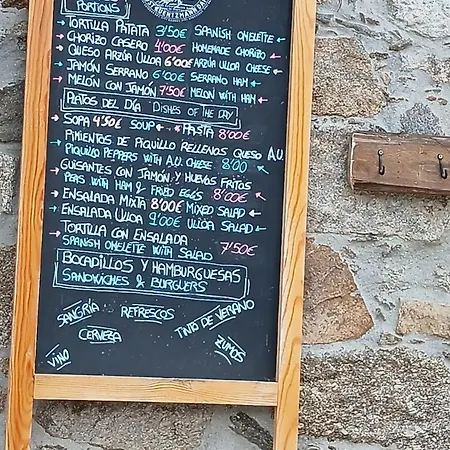 PORTIONS
TORTILLA PATATA 3'50€ SPANISH OMELETTE
CHORIZO CASERO 4'00€ HOMEMADE CHORIZO
QUESO ARZÚA ULLOA 6'00€ ARZÚA ULLOA CHEESE
JAMÓN SERRANO 6'00€ SERRANO HAM
MELÓN CON JAMÓN 7'50€ MELON WITH HAM
PLATOS DEL DÍA DISHES OF THE DAY
SOPA 4'50€ SOUP PASTA 8'00€
PIMIENTOS DE PIQUILLO RELLENOS QUESO A.U.
PIQUILLO PEPPERS WITH A.U. CHEESE 8'00
GUISANTES CON JAMÓN Y HUEVOS FRITOS
PEAS WITH HAM & FRIED EGGS 8'00€
ENSALADA MIXTA 8'00€ MIXED SALAD
ENSALADA ULLOA 9'00€ ULLOA SALAD
TORTILLA CON ENSALADA
SPANISH OMELETTE WITH SALAD 7'50€
BOCADILLOS Y HAMBURGUESAS
SANDWICHES & BURGUERS
SANGRÍA REFRESCOS TINTO DE VERANO
CERVEZA
VINO ZUMOS